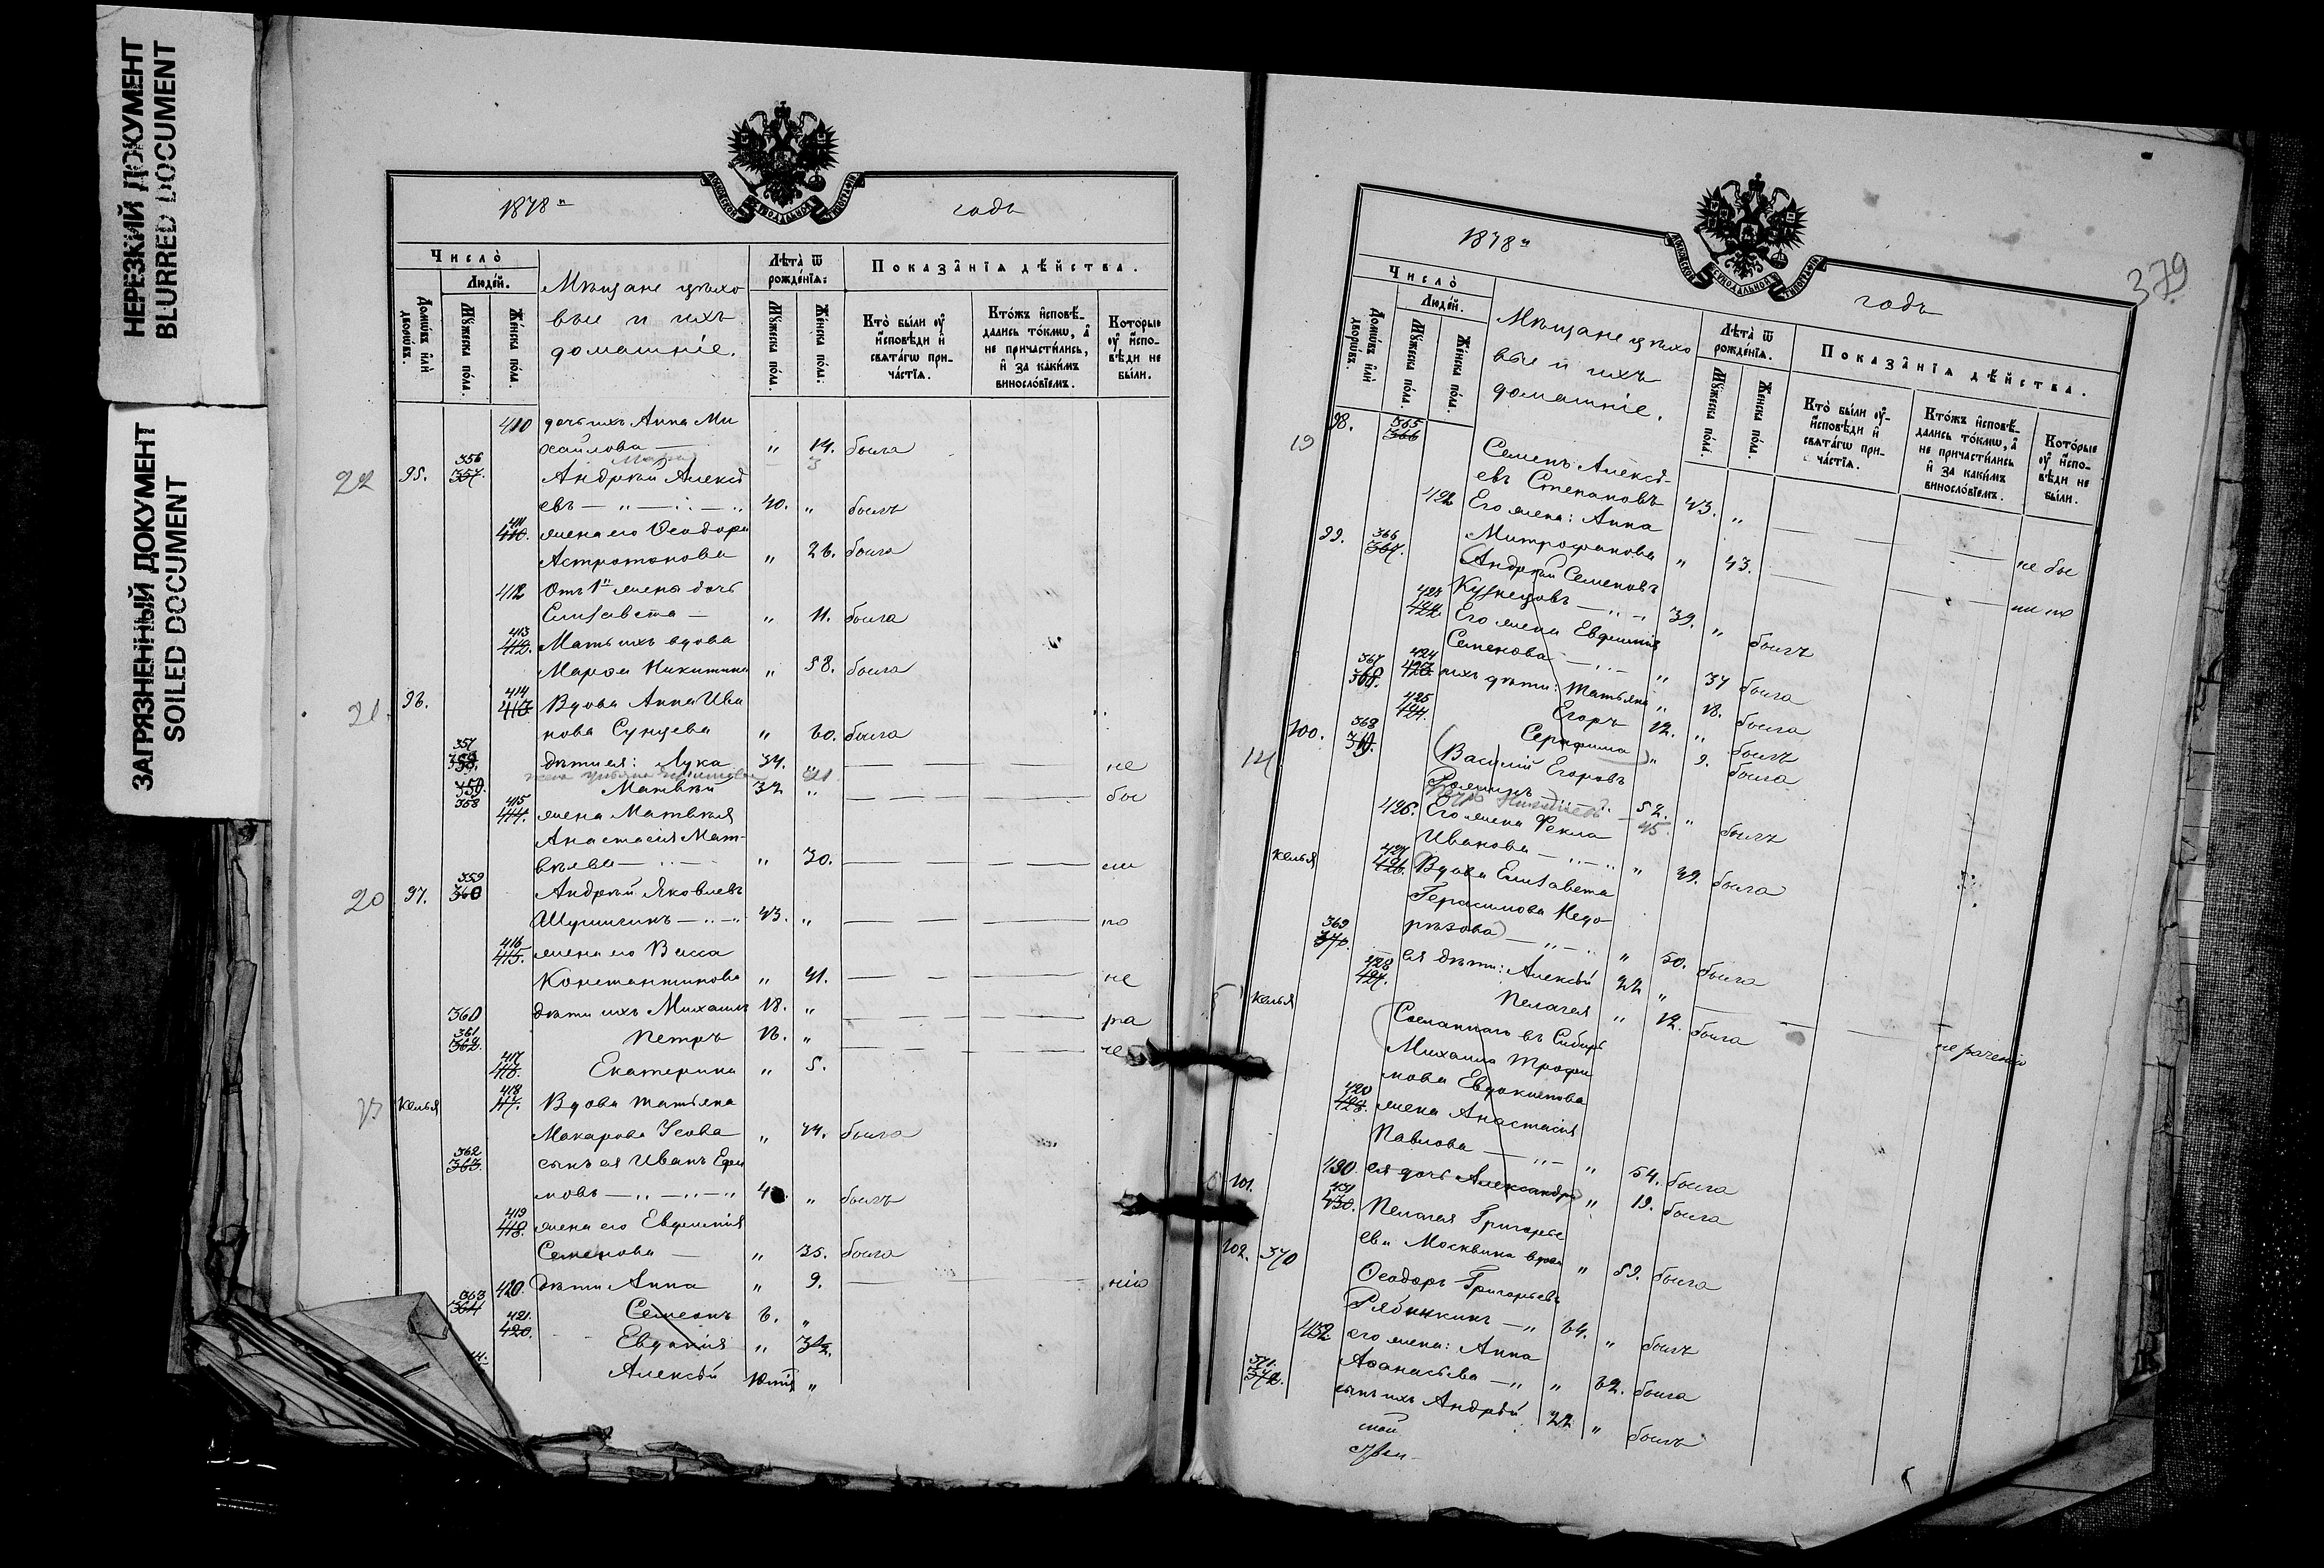 НЕРЕЗКИЙ ДОКУМЕНТ
BLURRED DOCUMENT
ЗАГРЯЗНЕННЫЙ ДОКУМЕНТ
SOILED DOCUMENT
МОСКОВСКОЙ СѴНОДАЛЬНОЙ ТИПОГРАФИ
1878 годъ
Число̀
Людей.
Домѡ́въ или̂ дворѡ́въ.
Мꙋжеска по́ла.
Же́нска по́ла.
Мѣщане цѣхо
вые и ихъ
домашніе.
Лѣта̀ ѿ рождéнїѧ:
Мꙋжеска по́ла.
Же́нска по́ла:
Показа̂нїѧ дѣ́йства.
Кто̀ бы́ли ᲂу҆ и҆сповѣди и҆ свѧта́гѡ при-
ча́стїѧ.
Кто́жъ и҆сповѣ́-
дались то́кмѡ, а҆
не причасти́лись,
и҆ за каки́мъ
винословїемъ.
Кото́рые
ᲂу҆ и҆спо-
вѣди не
бы́ли.
410 дочь ихъ Анна Ми
хайлова — " 14. была
22 95. 356 357. Андрей Алексѣ
евъ — " — 40. " былъ
411 410. жена его Ѳеодора
" 26. была
412 Отъ 1й жены дочь
Елисавета — " 11. была
413 412. Мать ихъ вдова
Марѳа Никитина " 58. была
21. 96. 414 413 Вдова Анна Ива
нова Сунцева " 60. была
357 358. дѣти ея: Лука 34. " — не
359. 358 Матвѣй 32 " — бы
415 414. жена Матвѣя
Анастасія Мат-
вѣева — " 30. — ли
20 97. 359 360 Андрей Яковлевъ
43. " — по
416 415. жена его Васса
Константинова " 41. — не
360 дѣти ихъ Михаилъ 18. " — ра
361 362. Петръ 16. " — че
417 416. Екатерина " 5.
келья 418 417. Вдова Татьяна
Макарова Усова " 74. была
362 363. сынъ ея Иванъ Ефи
мовъ — " — " былъ
419 418. жена его Евфимія
Семенова — " 35. была
420. Дѣти Анна " 9. — нію
363 364 Семенъ 6. "
421. 420. Евдокія "
Алексѣй "
379
МОСКОВСКОЙ СѴНОДАЛЬНОЙ ТИПОГРАФИ
1878 годъ
Число̀
Людей.
Домѡ́въ или̂ дворѡ́въ.
Мꙋжеска по́ла.
Же́нска по́ла.
Мѣщане цѣхо
вые и ихъ
домашніе.
Лѣта̀ ѿ рождéнїѧ.
Мꙋжеска по́ла.
Же́нска по́ла.
Показа̂нїѧ дѣ́йства.
Кто̀ бы́ли ᲂу҆-
и҆сповѣди и҆
свѧта́гѡ при-
ча́стїѧ.
Кто́жъ и҆сповѣ́-
дались то́кмѡ, а҆
не причасти́лись
и҆ за каки́мъ
винословїемъ.
Кото́рые
ᲂу҆ и҆спо-
вѣди не
бы́ли.
19 98. 365 366 Семенъ Алексѣ-
евъ Степановъ 43. " — не бы
422 Его жена: Анна
Митрофанова " 43. — ли по
99. 366 367. Андрей Семеновъ
Кузнецовъ — " — 39. " былъ
423 422. Его жена Евфимія
Семенова — " 37 была
424 423 ихъ дѣти: Татьяна " 18. была
367 368. Егоръ 12. " былъ
425 424. Серафима " 9. была
14 100. 368 369. Василій Егоровъ
52. " былъ
45.
426. Его жена Фекла
Иванова — " — " 49. была
келья 427 426. Вдова Елисавета
Герасимова Недо
рѣзова — " — " 50. была
369 370. ея дѣти: Алексѣй 22 " — не раченію
428 427. Пелагея " 12. была
келья Сосланнаго въ Сибирь
Михаила Трофи
мова Евдокимова
429 428. жена Анастасія
Павлова — " — " 54. была
430 ея дочь Александра " 19. была
101. 431 430. Пелагея Григорье
ева Москвина вдова " 59. была
102. 370 Ѳеодоръ Григорьевъ
Рябинкинъ — " 64. " былъ
432 его жена: Анна
Аѳанасьева — " " 62. была
371. 372. сынъ ихъ Андрей 22 " былъ